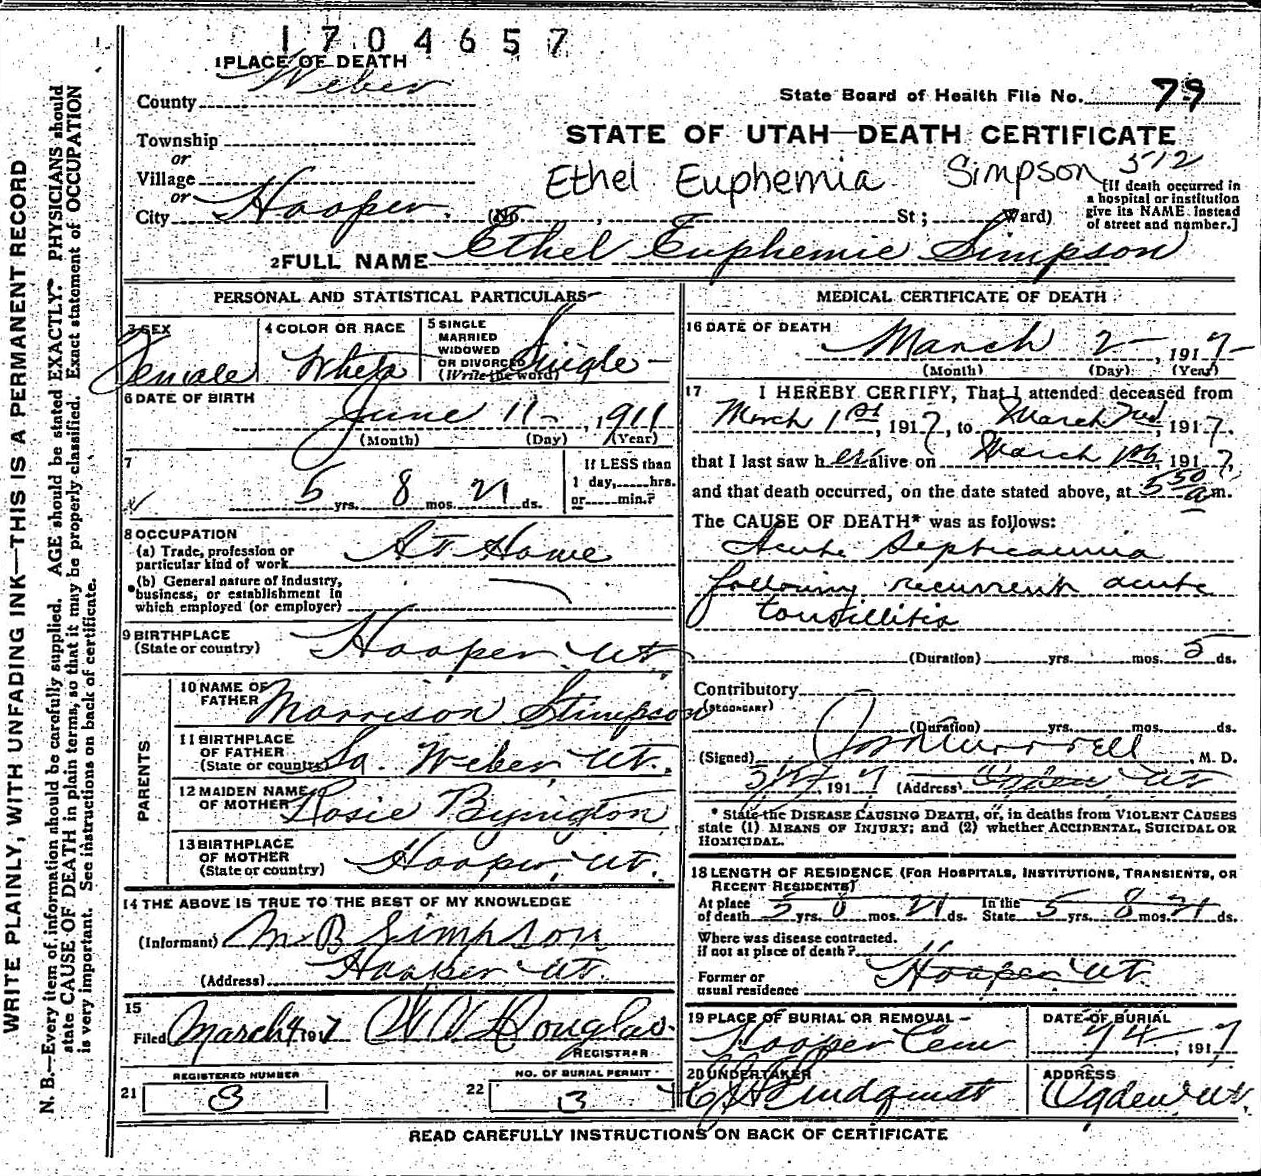 1704657
1 PLACE OF DEATH
County Weber
State Board of Health File No. 79
Township
or
Village
or
City Hooper
STATE OF UTAH—DEATH CERTIFICATE
Ethel Euphemia Simpson 372
(No. , St; Ward)
[If death occurred in
a hospital or institution
give its NAME instead
of street and number.]
2 FULL NAME Ethel Euphemie Simpson
PERSONAL AND STATISTICAL PARTICULARS
3 SEX
Female
4 COLOR OR RACE
White
5 SINGLE
MARRIED
WIDOWED
OR DIVORCED
(Write the word)
Single
6 DATE OF BIRTH
June 11, 1911
(Month) (Day) (Year)
7
5 yrs. 8 mos. 21 ds.
If LESS than
1 day, hrs.
or min.?
8 OCCUPATION
(a) Trade, profession or
particular kind of work At Home
(b) General nature of industry,
business, or establishment in
which employed (or employer)
9 BIRTHPLACE
(State or country) Hooper Ut.
PARENTS
10 NAME OF
FATHER Morrison Stimpson
11 BIRTHPLACE
OF FATHER
(State or country) So. Weber, Ut.
12 MAIDEN NAME
OF MOTHER Rosie Byington
13 BIRTHPLACE
OF MOTHER
(State or country) Hooper, Ut.
14 THE ABOVE IS TRUE TO THE BEST OF MY KNOWLEDGE
(Informant) M B Simpson
(Address) Hooper Ut.
15
Filed March 4 1917 W W Douglas
REGISTRAR
21 REGISTERED NUMBER
3
22 NO. OF BURIAL PERMIT
3
MEDICAL CERTIFICATE OF DEATH
16 DATE OF DEATH
March 2, 1917
(Month) (Day) (Year)
17 I HEREBY CERTIFY, That I attended deceased from
March 1st, 1917, to March 2nd 1917.
that I last saw her alive on March 1st, 1917,
and that death occurred, on the date stated above, at 5 50 a m.
The CAUSE OF DEATH* was as follows:
Acute Septicaemia
following recurrent acute
tonsillitis
(Duration) yrs. mos. 5 ds.
Contributory
(SECONDARY)
(Duration) yrs. mos. ds.
(Signed) Morrell, M. D.
3/2/ 1917 (Address) Ogden Ut
* State the DISEASE CAUSING DEATH, or, in deaths from VIOLENT CAUSES
state (1) MEANS OF INJURY; and (2) whether ACCIDENTAL, SUICIDAL OR
HOMICIDAL.
18 LENGTH OF RESIDENCE (FOR HOSPITALS, INSTITUTIONS, TRANSIENTS, OR
RECENT RESIDENTS)
At place
of death 5 yrs. 8 mos. 21 ds. In the
State 5 yrs. 8 mos. 21 ds.
Where was disease contracted.
if not at place of death?
Former or
usual residence Hooper Ut.
19 PLACE OF BURIAL OR REMOVAL
Hooper Cem
DATE OF BURIAL
4, 1917
20 UNDERTAKER
Lindquist
ADDRESS
Ogden Ut.
READ CAREFULLY INSTRUCTIONS ON BACK OF CERTIFICATE
WRITE PLAINLY, WITH UNFADING INK—THIS IS A PERMANENT RECORD
N. B.—Every item of information should be carefully supplied. AGE should be stated EXACTLY. PHYSICIANS should
state CAUSE OF DEATH in plain terms, so that it may be properly classified. Exact statement of OCCUPATION
is very important. See instructions on back of certificate.